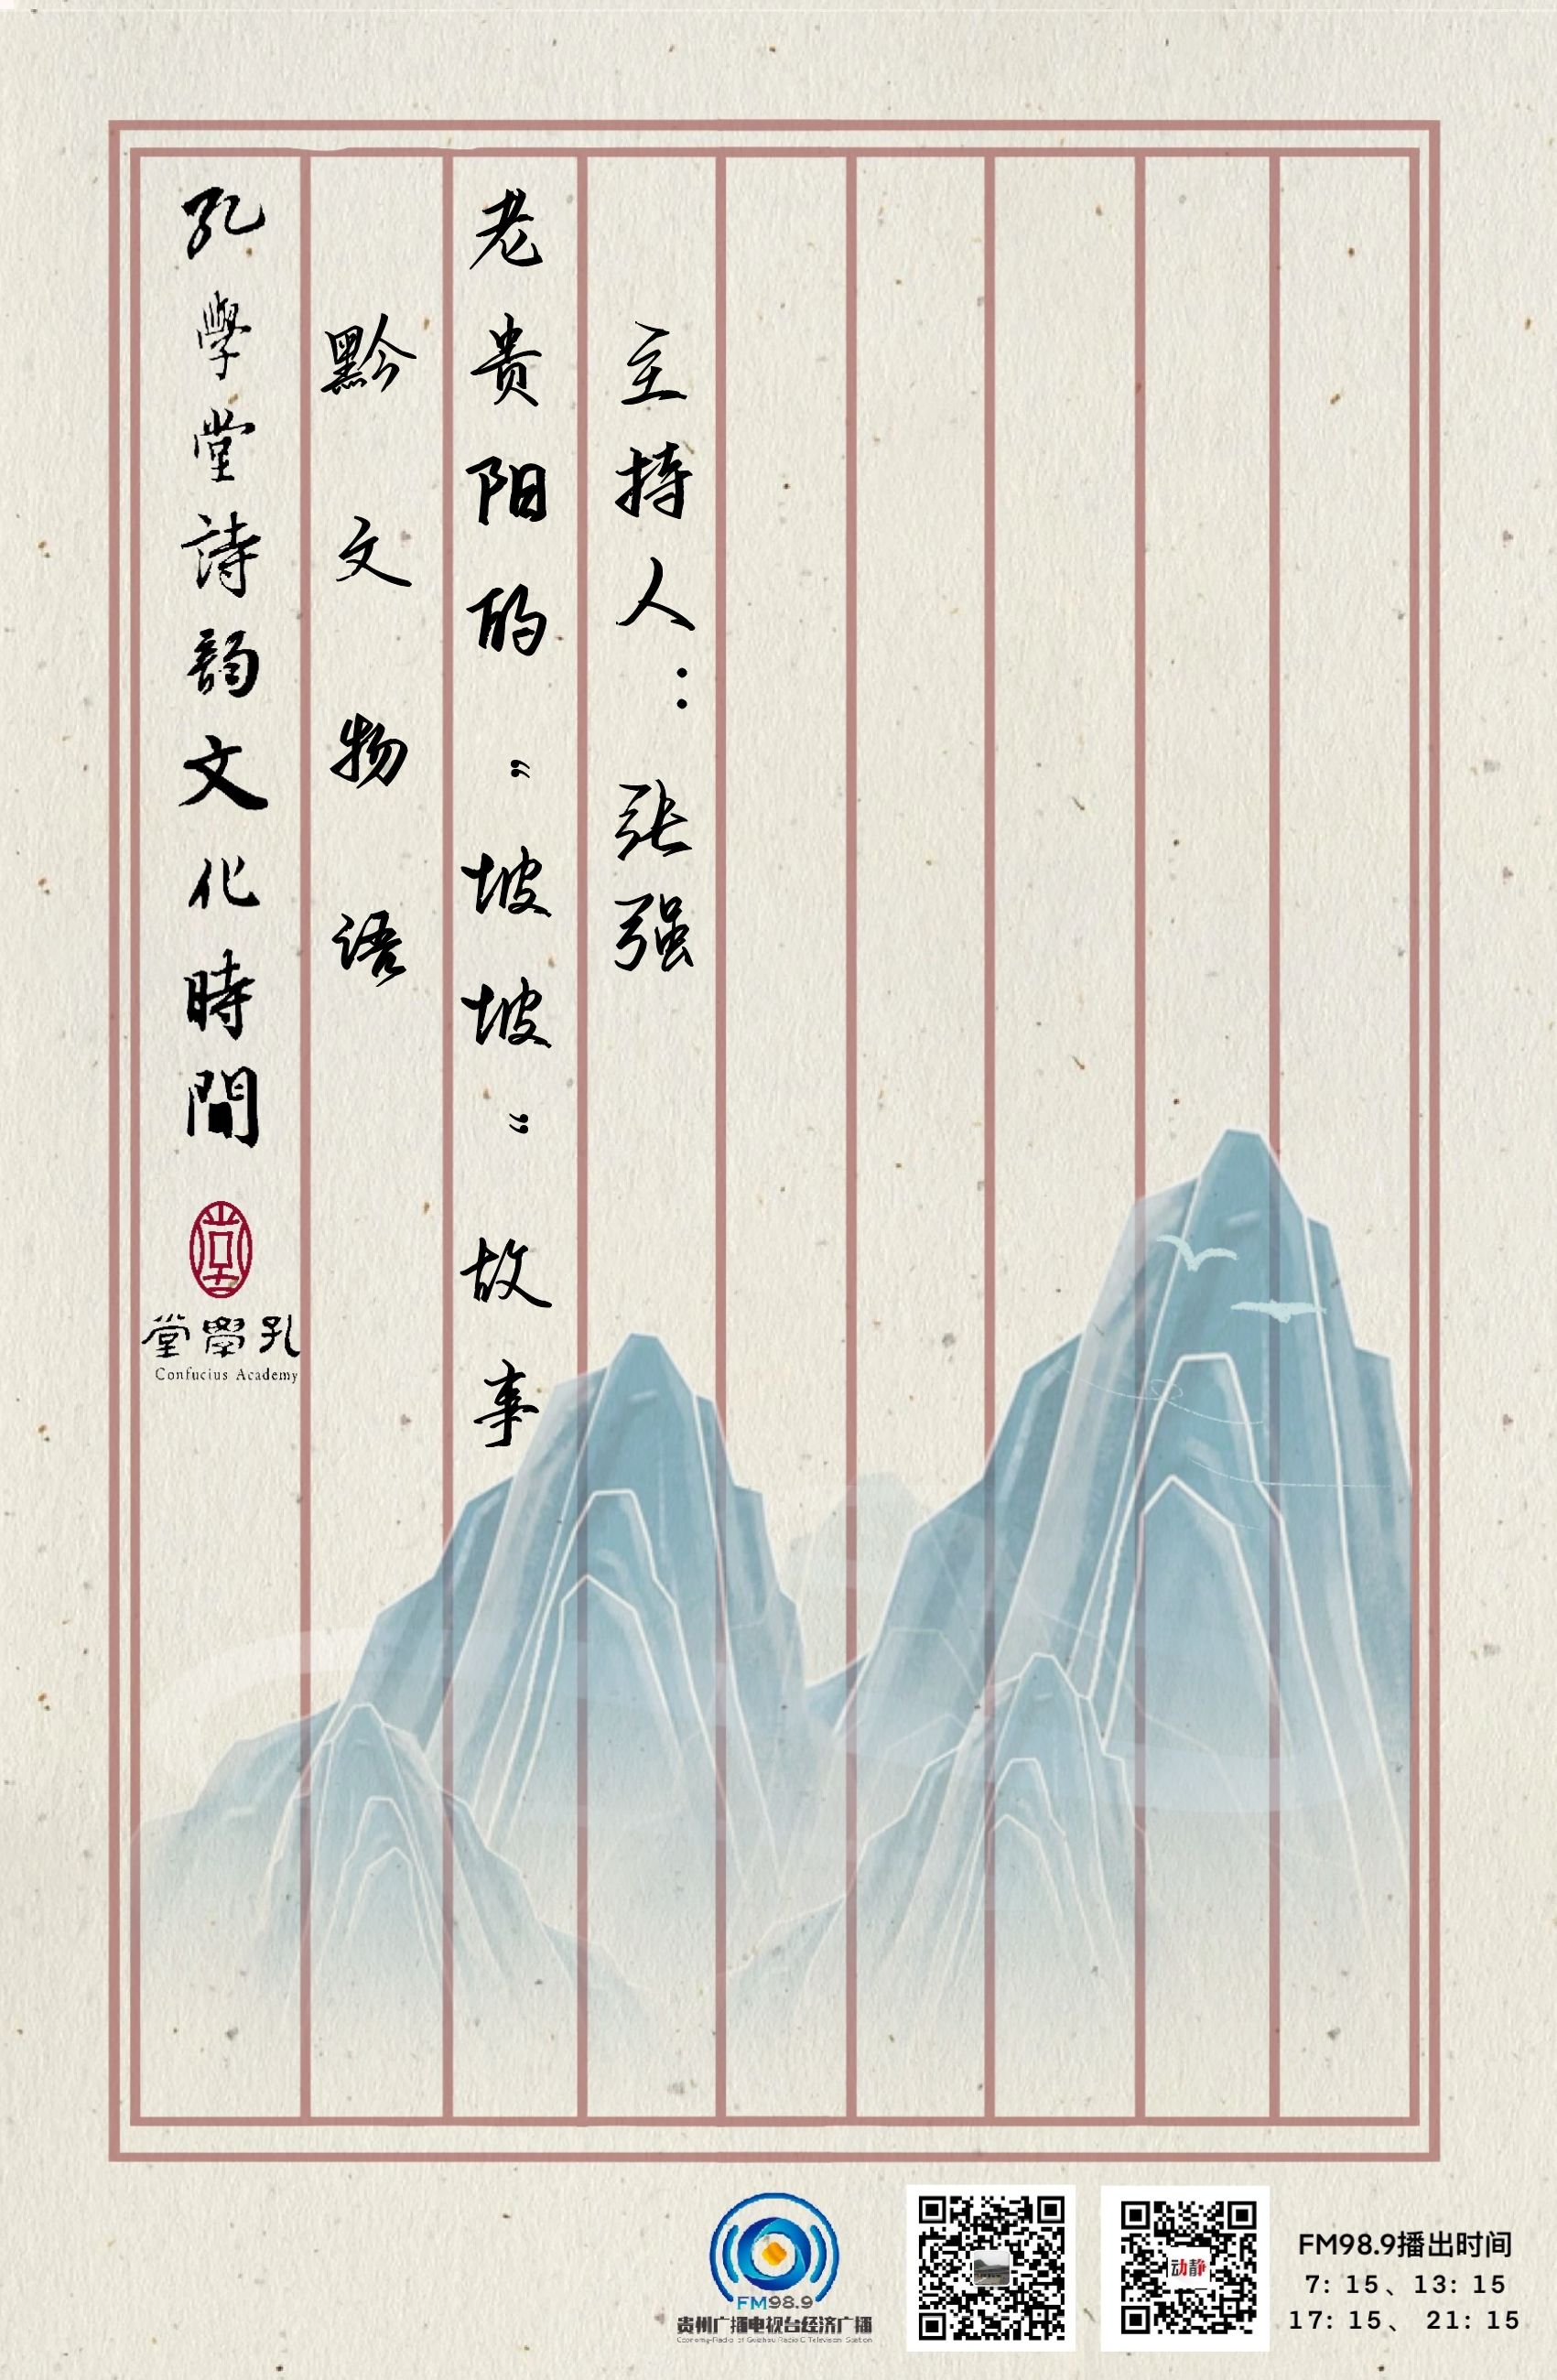 孔學堂詩韵文化時間
堂學孔
Confucius Academy
黔文物语
老贵阳的“坡坡”故事
主持人：张强
FM98.9
贵州广播电视台经济广播
Economy-Radio of Guizhou Radio & Television Station
动静
FM98.9播出时间
7: 15、13: 15
17: 15、 21: 15